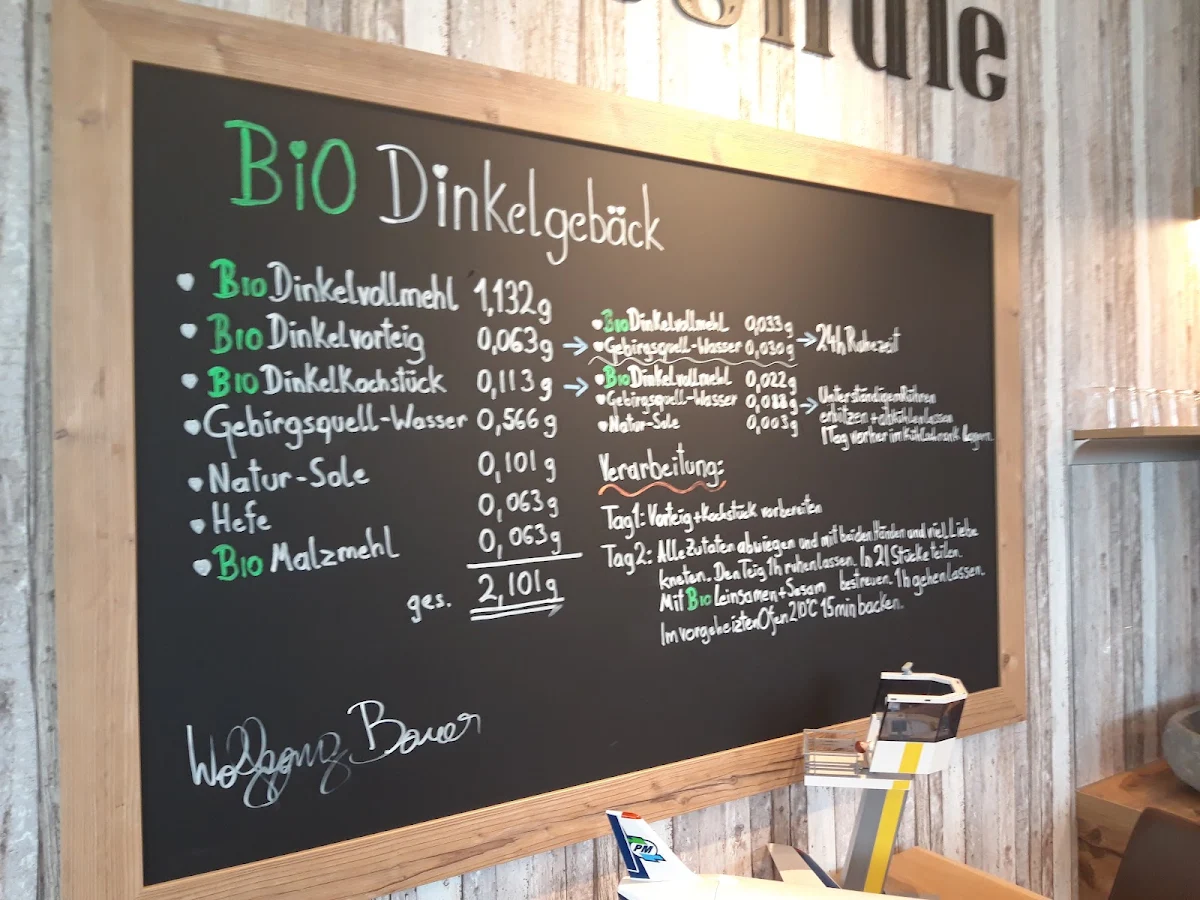 BiO Dinkelgebäck
• Bio Dinkelvollmehl 1,132g
• Bio Dinkelvorteig 0,063g →
• Bio Dinkelkochstück 0,113g →
• Gebirgsquell-Wasser 0,566g
• Natur-Sole 0,101g
• Hefe 0,063g
• Bio Malzmehl 0,063g
ges. 2,101g
• Bio Dinkelvollmehl 0,033g
• Gebirgsquell-Wasser 0,030g → 24h Ruhezeit
• Bio Dinkelvollmehl 0,022g
• Gebirgsquell-Wasser 0,088g →
• Natur-Sole 0,003g
Unter ständigem Rühren
erhitzen + abkühlen lassen
1 Tag vorher im Kühlschrank lagern.
Verarbeitung:
Tag1: Vorteig + Kochstück vorbereiten
Tag2: Alle Zutaten abwiegen und mit beiden Händen und viel Liebe
kneten. Den Teig 1h ruhen lassen. In 21 Stücke teilen.
Mit Bio Leinsamen + Sesam bestreuen. 1h gehen lassen.
Im vorgeheizten Ofen 210°C 15min backen.
Wolfgang Bauer
PM